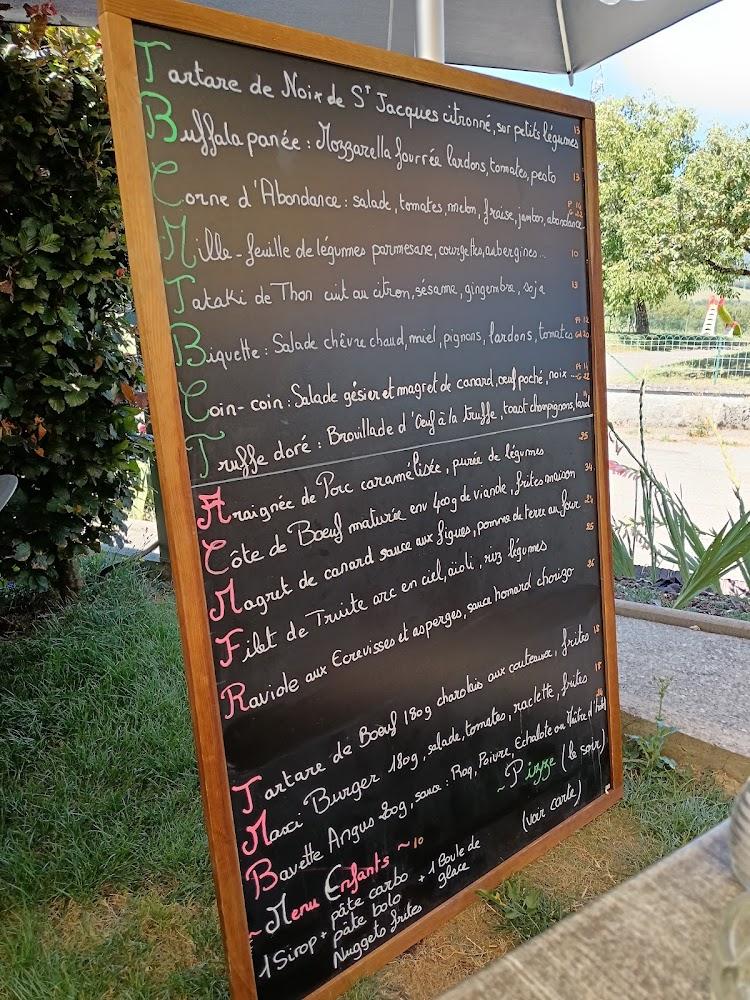 Tartare de Noix de St Jacques citronné, sur petits légumes 13
Buffala panée : Mozzarella fourrée lardons, tomates, pesto 13
Corne d'Abondance : salade, tomates, melon, fraise, jambon, abondance P 14 G 22
Mille-feuille de légumes parmesane, courgettes, aubergines... 10
Tataki de Thon cuit au citron, sésame, gingembre, soja 13
Biquette : Salade chèvre chaud, miel, pignons, lardons, tomates Pt 12 Gd 20
Coin-coin : Salade gésier et magret de canard, œuf poché, noix... Pt 14 G 22
Truffe doré : Brouillade d'Oeuf à la truffe, toast champignons, lard
Araignée de Porc caramélisée, purée de légumes 25
Côte de Boeuf maturée env 400g de viande, frites maison 34
Magret de canard sauce aux figues, pomme de terre au four 24
Filet de Truite arc en ciel, aïoli, riz légumes 25
Raviole aux Ecrevisses et asperges, sauce homard chorizo 26
Tartare de Boeuf 180g charolais aux couteaux, frites 18
Maxi Burger 180g, salade, tomates, raclette, frites 18
Bavette Angus 200g, sauce : Roq, Poivre, Echallote ou Maître d'hôtel
~ Pizze (le soir)
(voir carte)
~ Menu Enfants ~ 10
1 Sirop + pâte carbo + 1 Boule de glace
pâte bolo
Nuggets frites